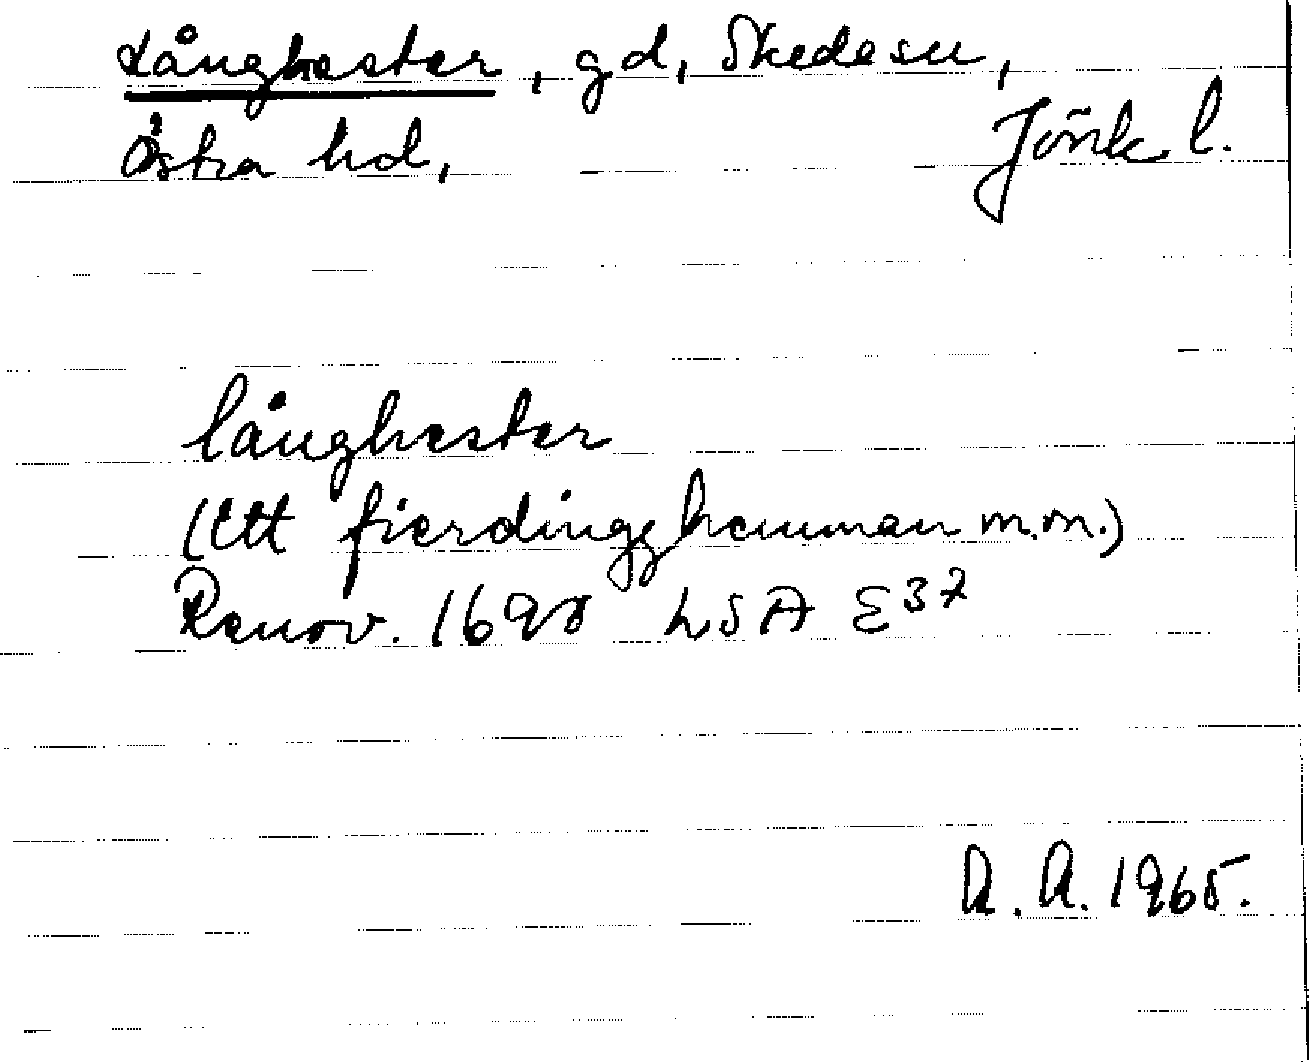 Långhester, gd, Skede sn,
Östra hd, Jönk l.
långhester
(Ett fierdinggz hemman m.m.)
Renov. 1690 LSA E37
R. A. 1965.